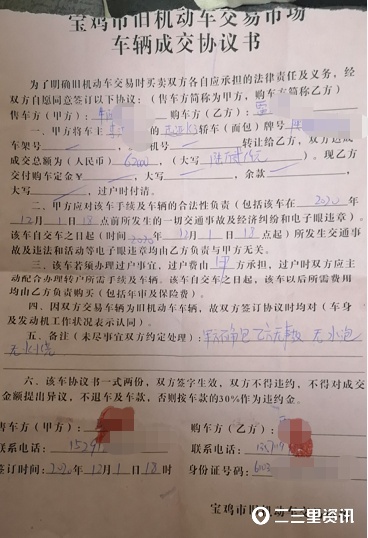 宝鸡市旧机动车交易市场
车辆成交协议书
为了明确旧机动车交易时买卖双方各自应承担的法律责任及义务，经
双方自愿同意签订以下协议：（售车方简称为甲方，购车方简称乙方）
售车方（甲方）： 购车方（乙方）：
一、甲方将车主 的 轿车（面包）牌号
车架号 机号 转让给乙方，双方达成
成交总额为（人民币） （大写 ）。现乙方
交付购车定金￥ ，大写 ，余款 ，
大写 ，过户时付清。
二、甲方应对该车手续及车辆的合法性负责（包括该车在 2020 年
12 月 1 日 18 点前所发生的一切交通事故及经济纠纷和电子眼违章）。
该车自交车之日起（时间 2020 年 12 月 1 日 18 点起）所发生交通事
故及违法和活动等电子眼违章均由乙方负责与甲方无关。
三、该车若须办理过户事宜，过户费由 甲 方承担，过户时双方应主
动配合办理转户所需手续及车辆。该车自交车之日起，该车以后所需费用
均由乙方负责购买（包括年审及保险费）。
四、因双方交易车辆为旧机动车车辆，故双方签订协议时均对（车身
及发动机工作状况表示认同）。
五、备注（未尽事宜双方约定处理）： 无水泡
无火烧
六、该车协议书一式两份，双方签字生效，双方不得违约，不得对成交
金额提出异议，不退车及车款，否则按车款的30%作为违约金。
售车方（甲方）： 购车方（乙方）：
联系电话：1529 联系电话：
签订时间：2020 年 12 月 1 日 18 时 身份证号码：
宝鸡市旧机动车
二三里资讯